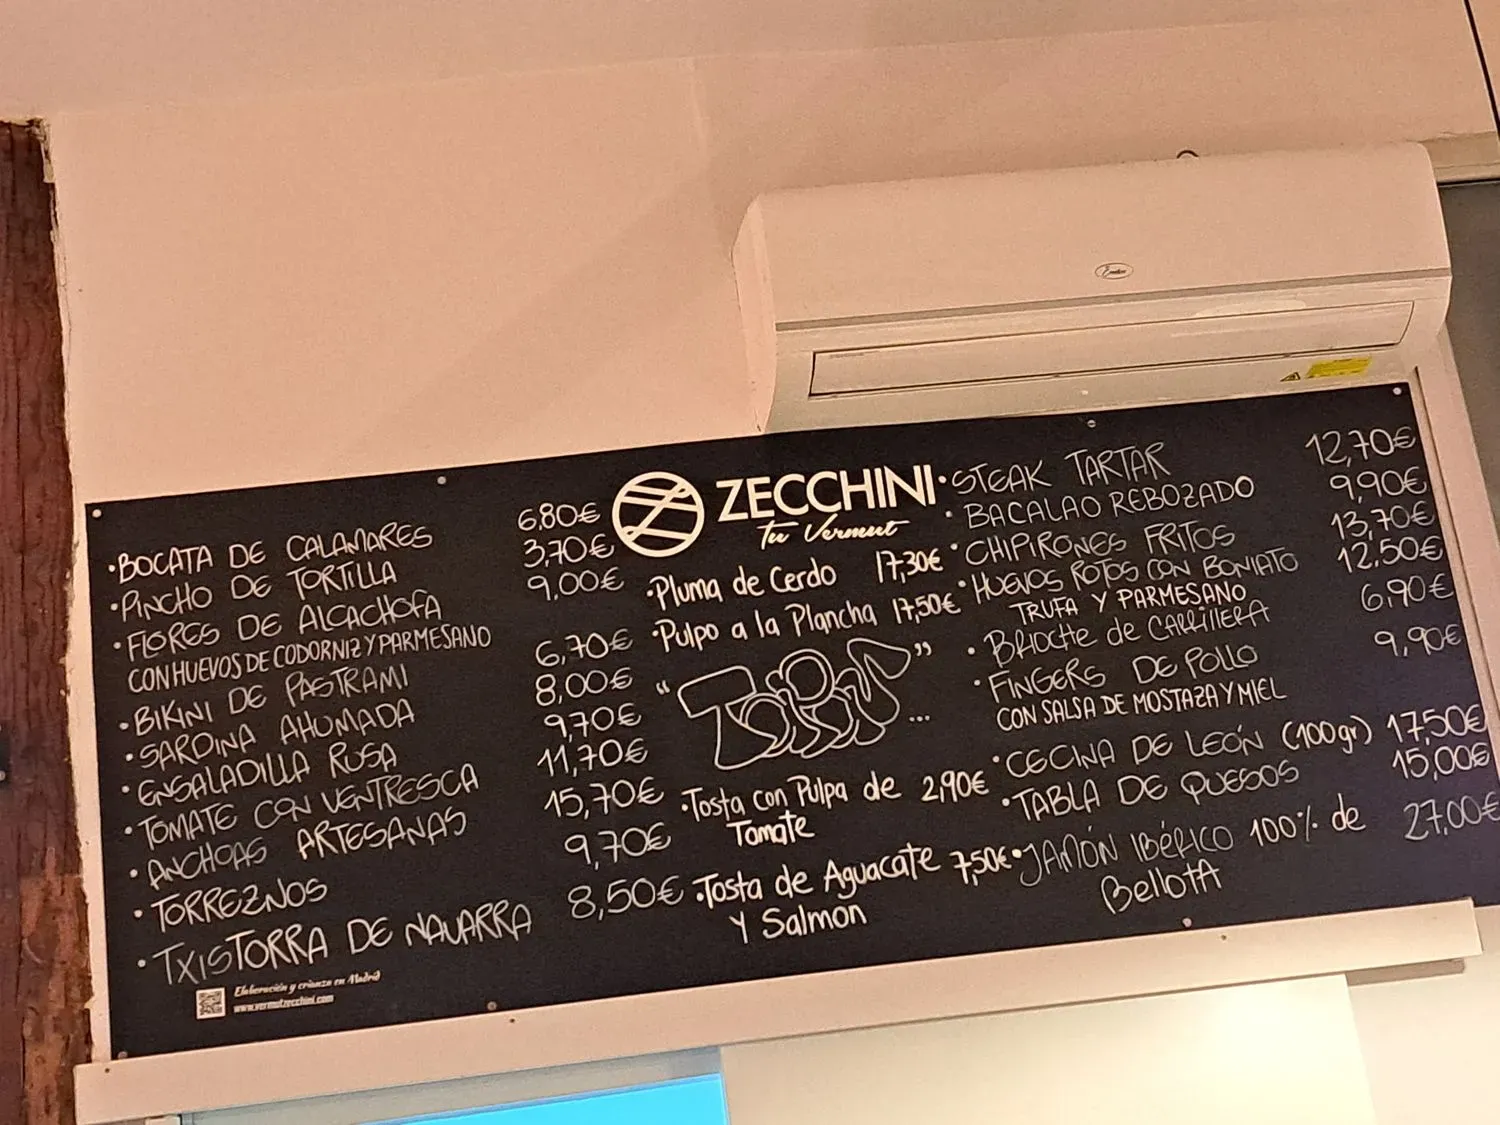 ZECCHINI
Tu Vermut
·BOCATA DE CALAMARES 6.80€
·PINCHO DE TORTILLA 3,70€
·FLORES DE ALCACHOFA 9,00€
CON HUEVOS DE CODORNIZ Y PARMESANO
·BIKINI DE PASTRAMI 6,70€
·SARDINA AHUMADA 8,00€
·ENSALADILLA RUSA 9,70€
·TOMATE CON VENTRESCA 11,70€
·ANCHOAS ARTESANAS 15,70€
·TORREZNOS 9,70€
·TXISTORRA DE NAVARRA 8,50€
Elaboración y crianza en Madrid
www.vermutzecchini.com
·Pluma de Cerdo 17,30€
·Pulpo a la Plancha 17,50€
·Tosta con Pulpa de 2,90€
Tomate
·Tosta de Aguacate 7,50€
Y Salmon
·STEAK TARTAR 12,70€
·BACALAO REBOZADO 9,90€
·CHIPIRONES FRITOS 13,70€
·HUEVOS ROTOS CON BONIATO 12,50€
TRUFA Y PARMESANO
·BRIOCHE de CARRILLERA 6,90€
·FINGERS DE POLLO 9,90€
CON SALSA DE MOSTAZA Y MIEL
·CECINA DE LEÓN (100gr) 17,50€
·TABLA DE QUESOS 15,00€
·JAMÓN IBÉRICO 100% de 27,00€
BELLOTA